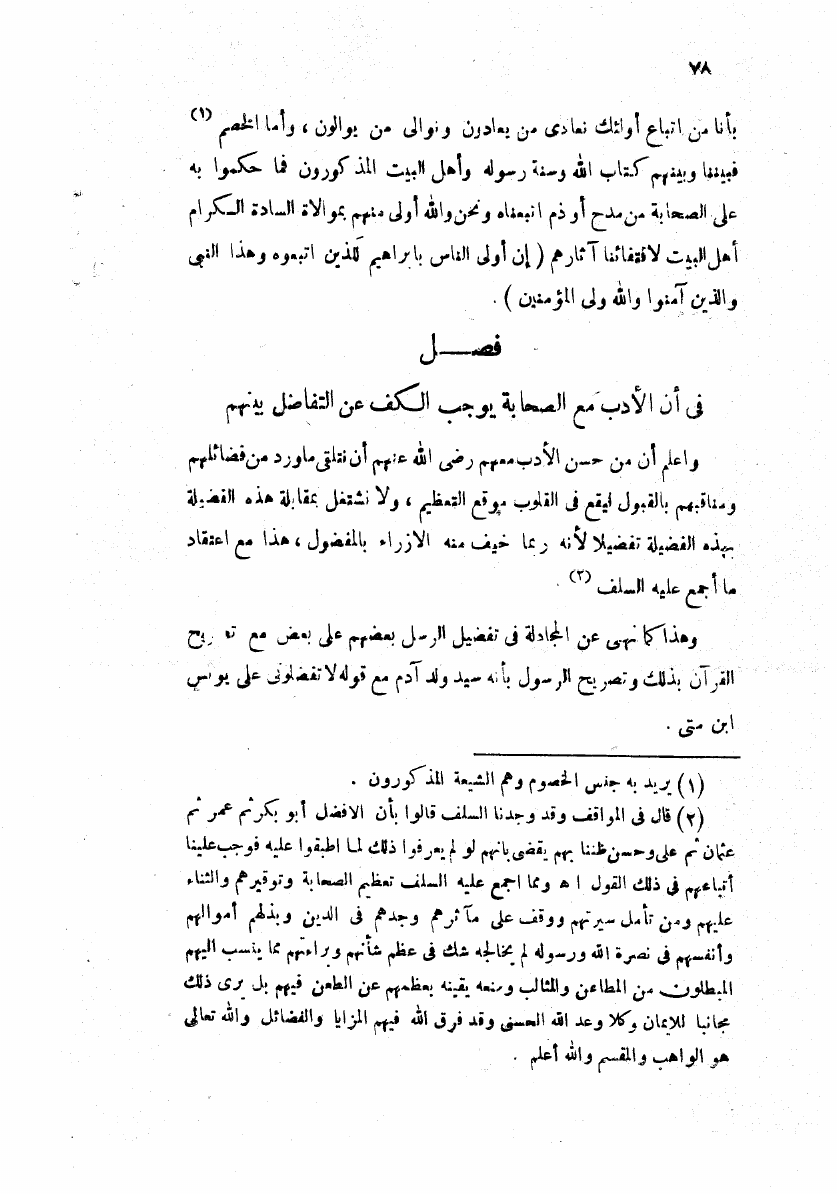 ٧٨
بأنا من اتباع أولئك نعادى من يعادون ونوالى من يوالون ، وأما الخصم (١)
فبيننا وبينهم كتاب الله وسنة رسوله وأهل البيت المذكورون فما حكموا به
على الصحابة من مدح أو ذم اتبعناه ونحن والله أولى منهم بموالاة السادة الكرام
أهل البيت لاقتفائنا آثارهم ( إن أولى الناس بابراهيم للذين اتبعوه وهذا النبى
والذين آمنوا والله ولى المؤمنين ) .
فصـــل
فى أن الأدب مع الصحابة يوجب الكف عن التفاضل بينهم
واعلم أن من حسن الأدب معهم رضى الله عنهم أن نتلقى ماورد من فضائلهم
ومناقبهم بالقبول ليقع فى القلوب موقع التعظيم ، ولا نشتغل بمقابلة هذه الفضيلة
بهذه الفضيلة تفضيلا لأنه ربما خيف منه الازراء بالمفضول ، هذا مع اعتقاد
ما أجمع عليه السلف (٢) .
وهذا كما نهى عن المجادلة فى تفضيل الرسل بعضهم على بعض مع تصريح
القرآن بذلك وتصريح الرسول بأنه سيد ولد آدم مع قوله لا تفضلونى على يونس
ابن متى .
(١) يريد به جنس الخصوم وهم الشيعة المذكورون .
(٢) قال فى المواقف وقد وجدنا السلف قالوا بأن الافضل أبو بكر ثم عمر ثم
عثمان ثم على وحسن ظننا بهم يقضى بانهم لو لم يعرفوا ذلك لما اطبقوا عليه فوجب علينا
أتباعهم فى ذلك القول ا ه ومما اجمع عليه السلف تعظيم الصحابة وتوقيرهم والثناء
عليهم ومن تأمل سيرتهم ووقف على مآثرهم وجدهم فى الدين وبذلهم أموالهم
وأنفسهم فى نصرة الله ورسوله لم يخالجه شك فى عظم شأنهم وبراءتهم مما ينسب اليهم
المبطلون من المطاعن والمثالب ومنعه يقينه بعظمهم عن الطعن فيهم بل يرى ذلك
مجانبا للايمان وكلا وعد الله الحسنى وقد فرق الله فيهم المزايا والفضائل والله تعالى
هو الواهب والمقسم والله أعلم .